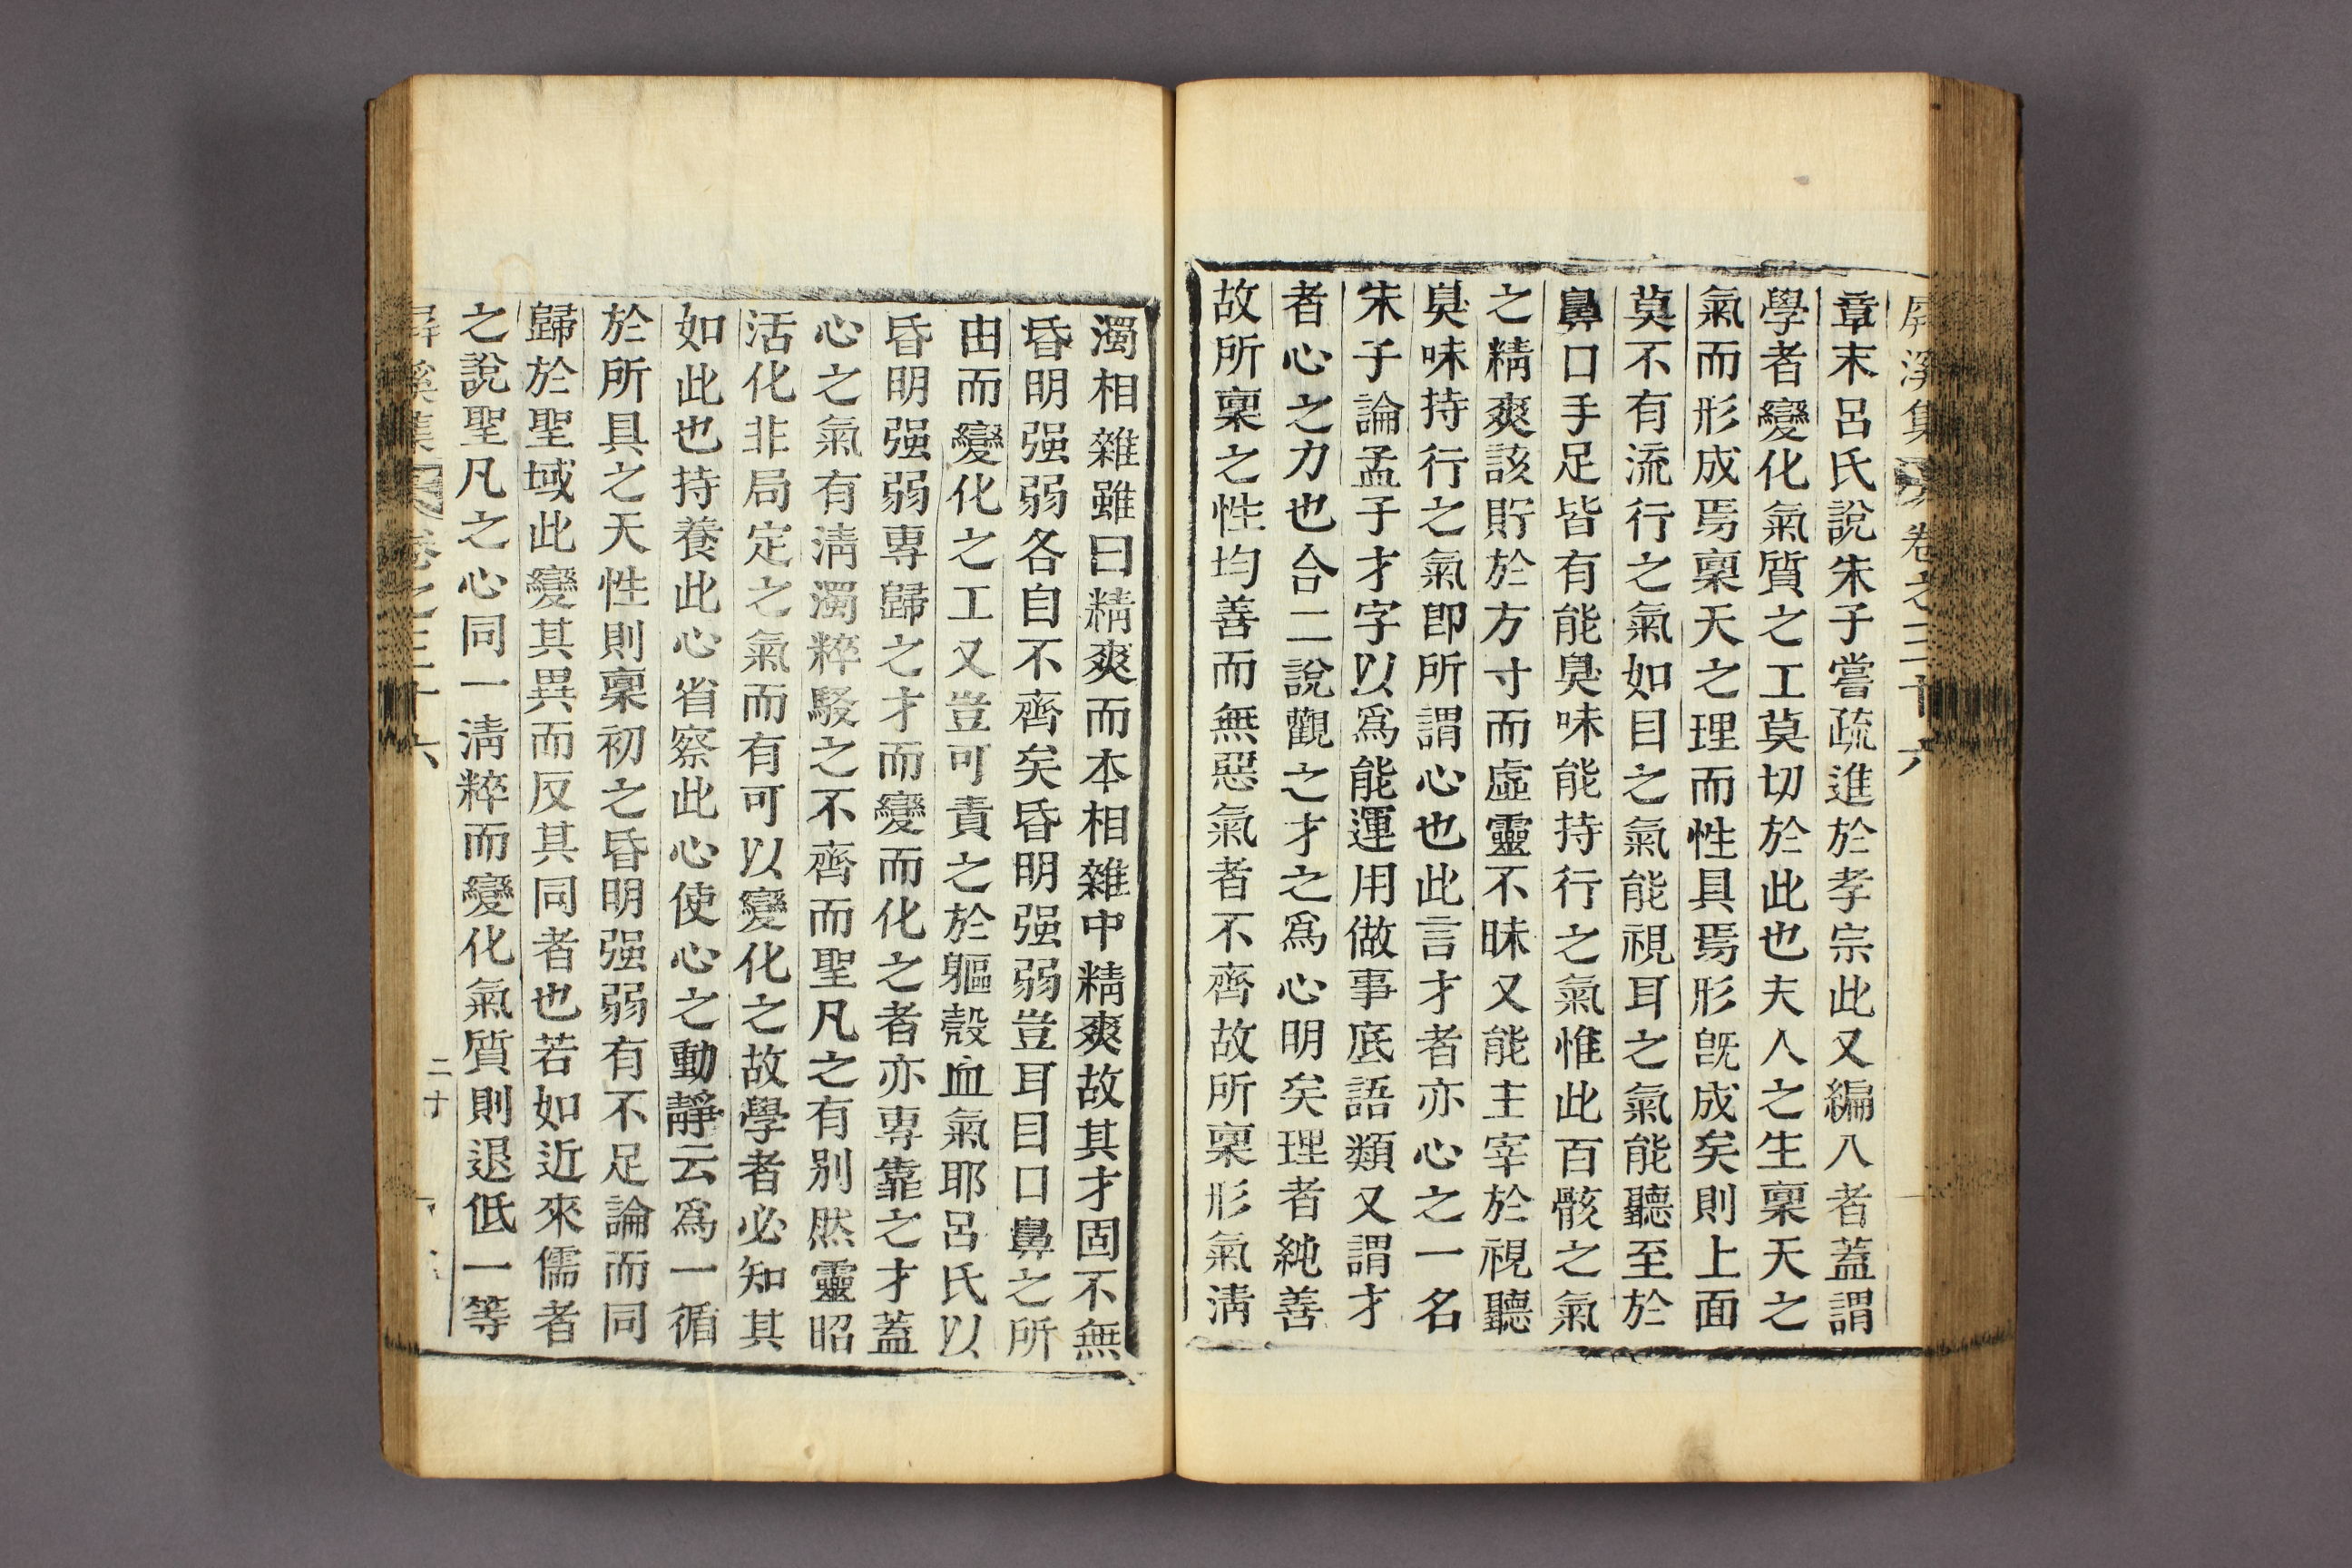 屛溪集 卷之三十六
章末呂氏說朱子嘗疏進於孝宗此又編入者蓋謂
學者變化氣質之工莫切於此也夫人之生稟天之
氣而形成焉稟天之理而性具焉形旣成矣則上面
莫不有流行之氣如目之氣能視耳之氣能聽至於
鼻口手足皆有能臭味能持行之氣惟此百骸之氣
之精爽該貯於方寸而虛靈不昧又能主宰於視聽
臭味持行之氣卽所謂心也此言才者亦心之一名
朱子論孟子才字以爲能運用做事底語類又謂才
者心之力也合二說觀之才之爲心明矣理者純善
故所稟之性均善而無惡氣者不齊故所稟形氣淸
濁相雜雖曰精爽而本相雜中精爽故其才固不無
昏明强弱各自不齊矣昏明强弱豈耳目口鼻之所
由而變化之工又豈可責之於軀殼血氣耶呂氏以
昏明强弱專歸之才而變而化之者亦專靠之才蓋
心之氣有淸濁粹駁之不齊而聖凡之有別然靈昭
活化非局定之氣而有可以變化之故學者必知其
如此也持養此心省察此心使心之動靜云爲一循
於所具之天性則稟初之昏明强弱有不足論而同
歸於聖域此變其異而反其同者也若如近來儒者
之說聖凡之心同一淸粹而變化氣質則退低一等
屛溪集 卷之三十六
二十